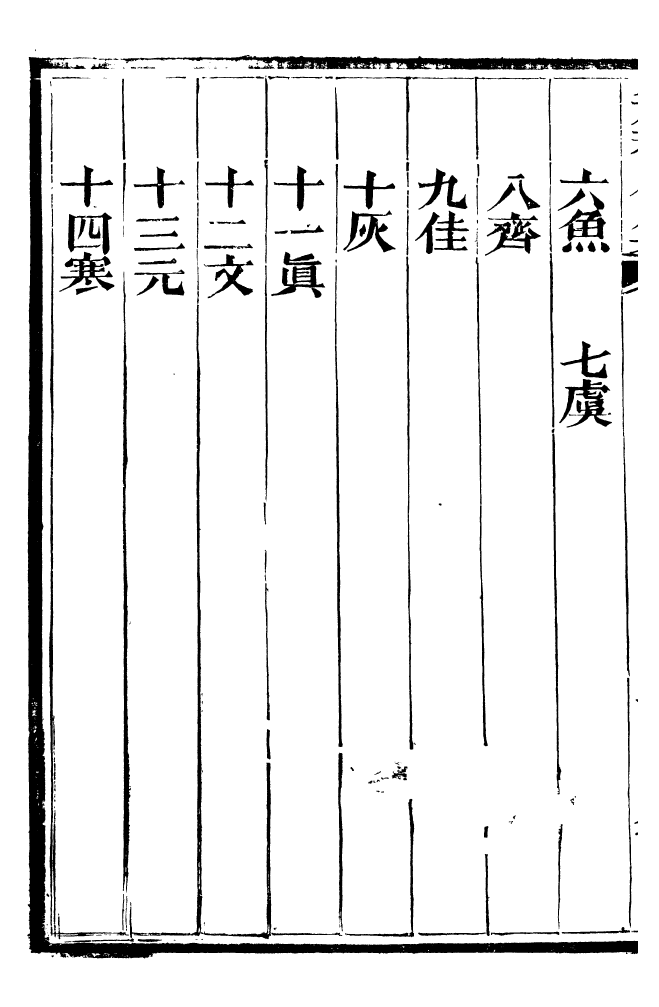 六魚　七虞
八齊
九佳
十灰
十一眞
十二文
十三元
十四寒